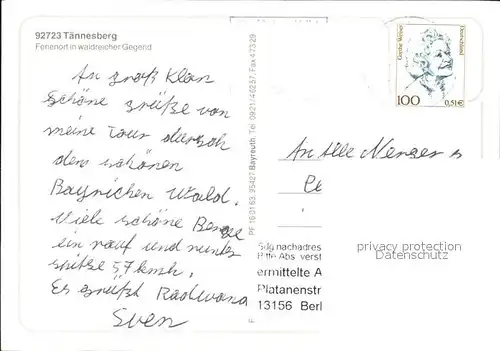 92723 Tännesberg
Ferienort in waldreicher Gegend
An groß Klan
schöne grüße von
meine Tour dursch
den schönen
Bayrichen Wald.
Viele schöne Berge
ein rauf und runter
spitze 57 kmh.
Es grüßt Radwana
Sven
PF 16 01 63, 95427 Bayreuth, Tel. 0921/4-6257, Fax 47329
Grethe Weiser
Deutschland
100
0,51€
An Alle
Sdg nachadres
Bitte Abs. verst
ermittelte A
Platanenstr
13156 Berl
privacy protection
Datenschutz